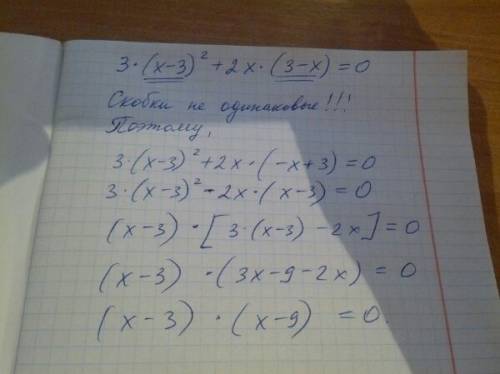 3·(x-3)² + 2x·(3-x) = 0
Скобки не одинаковые!!!
Поэтому,
3·(x-3)² + 2x·(-x+3) = 0
3·(x-3)² - 2x·(x-3) = 0
(x-3)·[3·(x-3) - 2x] = 0
(x-3)·(3x-9-2x) = 0
(x-3)·(x-9) = 0.